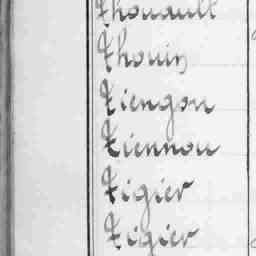 Thouault
Thouin
Tiengou
Tiennou
Tigier
Tigier